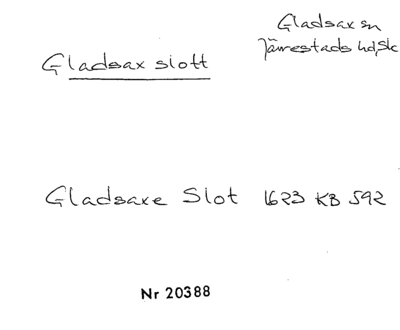 Gladsax slott
Gladsax sn
Järrestads hd, Sk
Gladsaxe Slot 1623 KB 592
Nr 20388